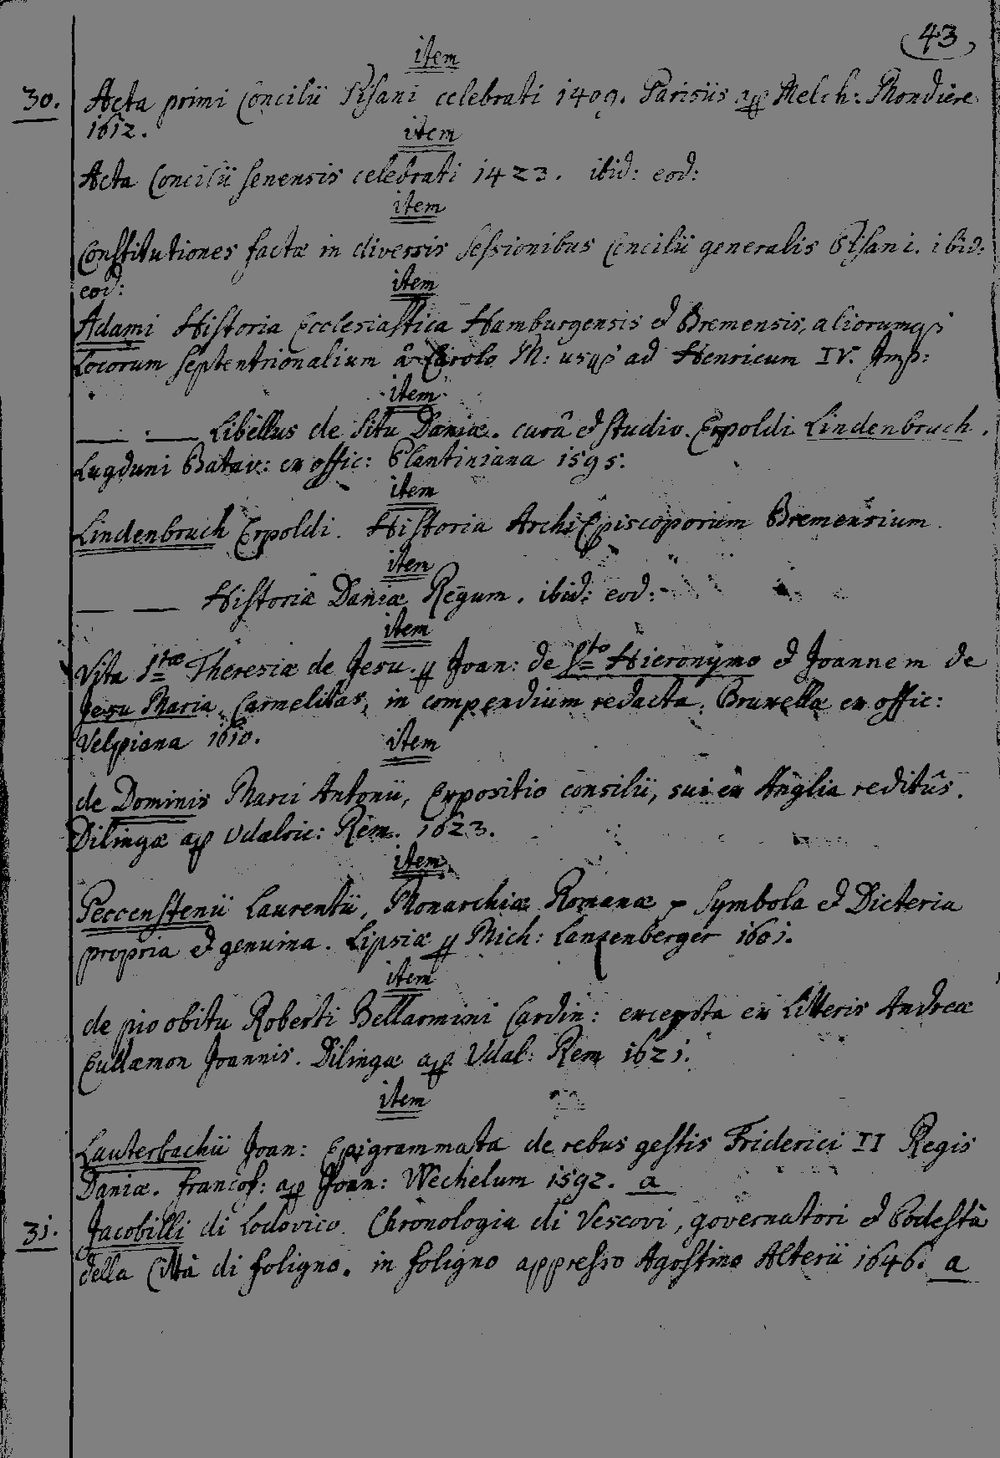 43
item
30. Acta primi Concilii Pisani celebrati 1409. Parisiis ap Melch: Mondiere
1612.
item
Acta Concilii Senensis celebrati 1423. ibid: eod:
item
Constitutiones factæ in diversis Sessionibus Concilii generalis Pisani. ibid:
eod:
item
Adami Historia Ecclesiastica Hamburgensis et Bremensis, aliorumq3
Locorum Septentrionalium â Carolo M: usq3 ad Henricum IV. Imp:
item
— — Libellus de Situ Daniæ. curâ et studio Erpoldi Lindenbruch.
Lugduni Batav: ex offic: Plantiniana 1595.
item
Lindenbruch Erpoldi. Historia ArchiEpiscoporum Bremensium.
item
— — Historia Daniæ Regum. ibid: eod:
item
Vita S.tæ Theresiæ de Jesu. p Joan: de S.to Hieronymo et Joannem de
Jesu Maria, Carmelitas, in compendium redacta. Bruxellæ ex offic:
Velpiana 1610.
item
de Dominis Marci Antonii, Expositio consilii, sui ex Anglia reditûs.
Dilingæ ap Udalric: Rem. 1623.
item
Peccenstenii Laurentii, Monarchiæ Romanæ Symbola et Dicteria
propria et genuina. Lipsiæ p Mich: Lanzenberger 1601.
item
de pio obitu Roberti Bellarmini Cardin: excerpta ex Litteris Andreæ
Eudæmon Joannis. Dilingæ ap Udal: Rem 1621.
item
Lauterbachii Joan: Epigrammata de rebus gestis Friderici II Regis
Daniæ. francof: ap Joan: Wechelum 1592. a
31. Jacobilli di Lodovico. Chronologia di Vescovi, governatori et Podestà
della Città di foligno. in foligno appresso Agostino Alterii 1646. a